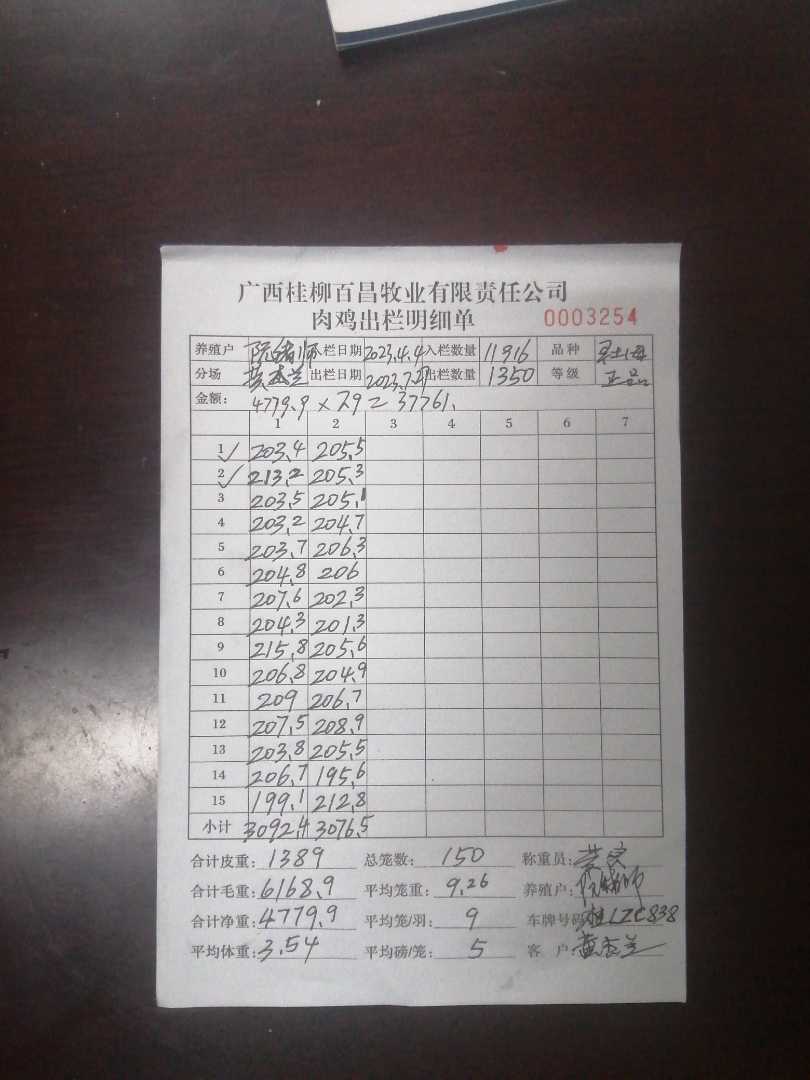 广西桂柳百昌牧业有限责任公司
肉鸡出栏明细单 0003254
养殖户 入栏日期 2023.4.4 入栏数量 11916 品种
分场 出栏日期 2023.7.27 出栏数量 1350 等级 正品
金额: 4779.9 × 7.9 = 37761.
1 2 3 4 5 6 7
1 ✓ 203.4 205.5
2 ✓ 213.2 205.3
3 203.5 205.1
4 203.2 204.7
5 203.7 206.3
6 204.8 206
7 207.6 202.3
8 204.3 201.3
9 215.8 205.6
10 206.8 204.9
11 209 206.7
12 207.5 208.9
13 203.8 205.5
14 206.7 195.6
15 199.1 212.8
小计 3092.4 3076.5
合计皮重: 1389 总笼数: 150 称重员:
合计毛重: 6168.9 平均笼重: 9.26 养殖户:
合计净重: 4779.9 平均笼/羽: 9 车牌号码: 桂LZC838
平均体重: 3.54 平均磅/笼: 5 客 户: